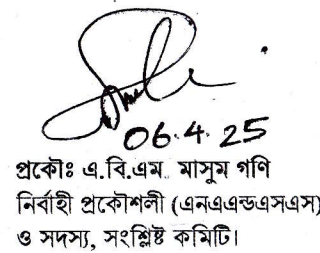 06.4.25
প্রকৌঃ এ.বি.এম. মাসুম গণি
নির্বাহী প্রকৌশলী (এনএএন্ডএসএস)
ও সদস্য, সংশ্লিষ্ট কমিটি।